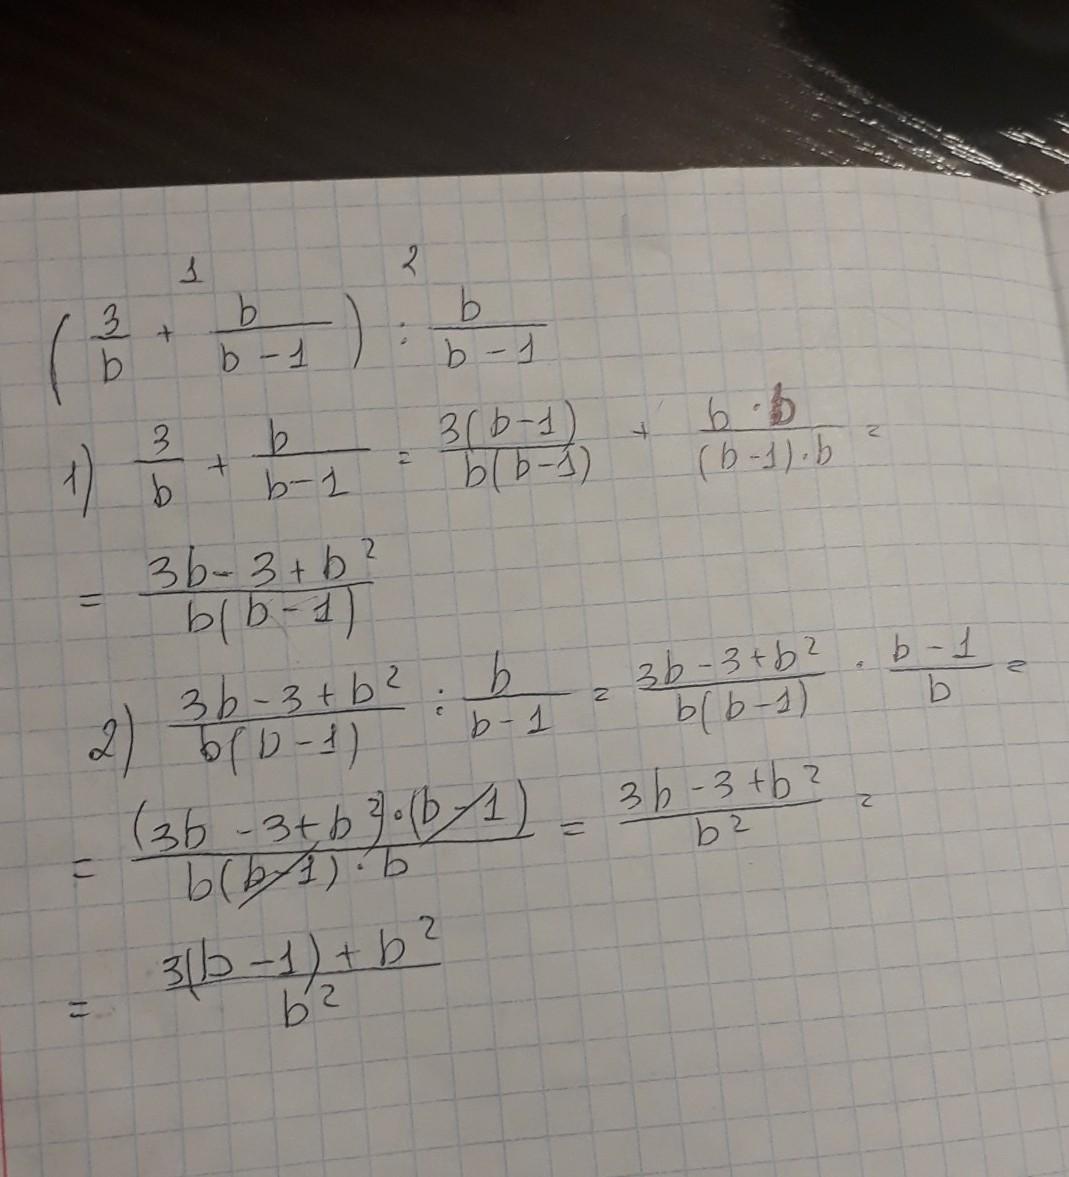 1 2
(3/b + b/(b-1)) : b/(b-1)
1) 3/b + b/(b-1) = 3(b-1)/b(b-1) + b·b/(b-1)·b =
= (3b-3+b²)/b(b-1)
2) (3b-3+b²)/b(b-1) : b/(b-1) = (3b-3+b²)/b(b-1) · (b-1)/b =
= (3b-3+b²)·(b-1)/b(b-1)·b = (3b-3+b²)/b² =
= (3(b-1)+b²)/b²